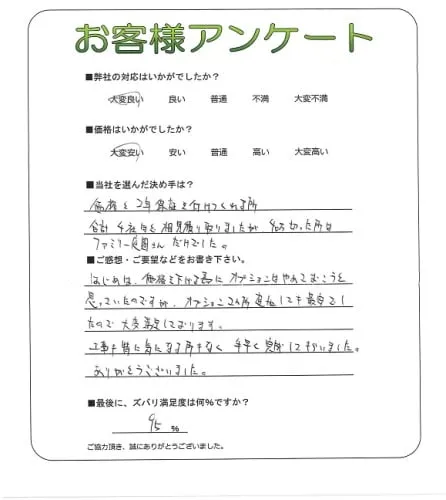 お客様アンケート
■弊社の対応はいかがでしたか？
大変良い 良い 普通 不満 大変不満
■価格はいかがでしたか？
大変安い 安い 普通 高い 大変高い
■当社を選んだ決め手は？
価格と2年保証を付けてくれる所
合計4社程を相見積り取りましたが、 所は
ファミリー庭園さんだけでした。
■ご感想・ご要望などをお書き下さい。
はじめは、価格を下げる為にオプションはやめておこうと
思っていたのですが、オプション 追加しても最安でし
たので大変満足しております。
工事も特に気になる所もなく、手早く完成して下さいました。
ありがとうございました。
■最後に、ズバリ満足度は何%ですか？
95 %
ご協力頂き、誠にありがとうございました。